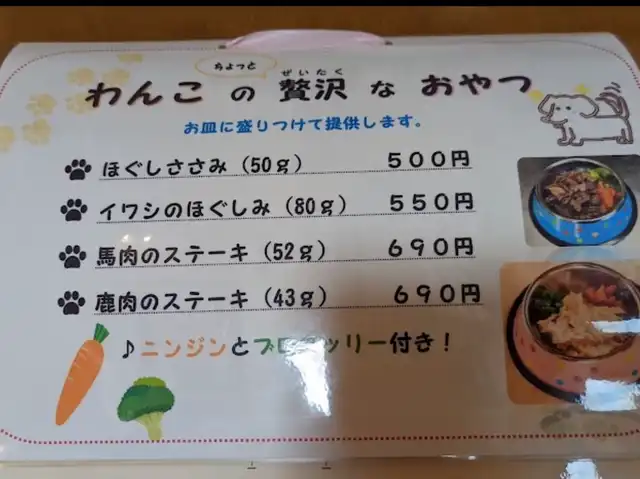 ちょっと
わんこの贅沢なおやつ
ぜいたく
お皿に盛りつけて提供します。
ほぐしささみ（50g） 500円
イワシのほぐしみ（80g） 550円
馬肉のステーキ（52g） 690円
鹿肉のステーキ（43g） 690円
♪ニンジンとブロッコリー付き！